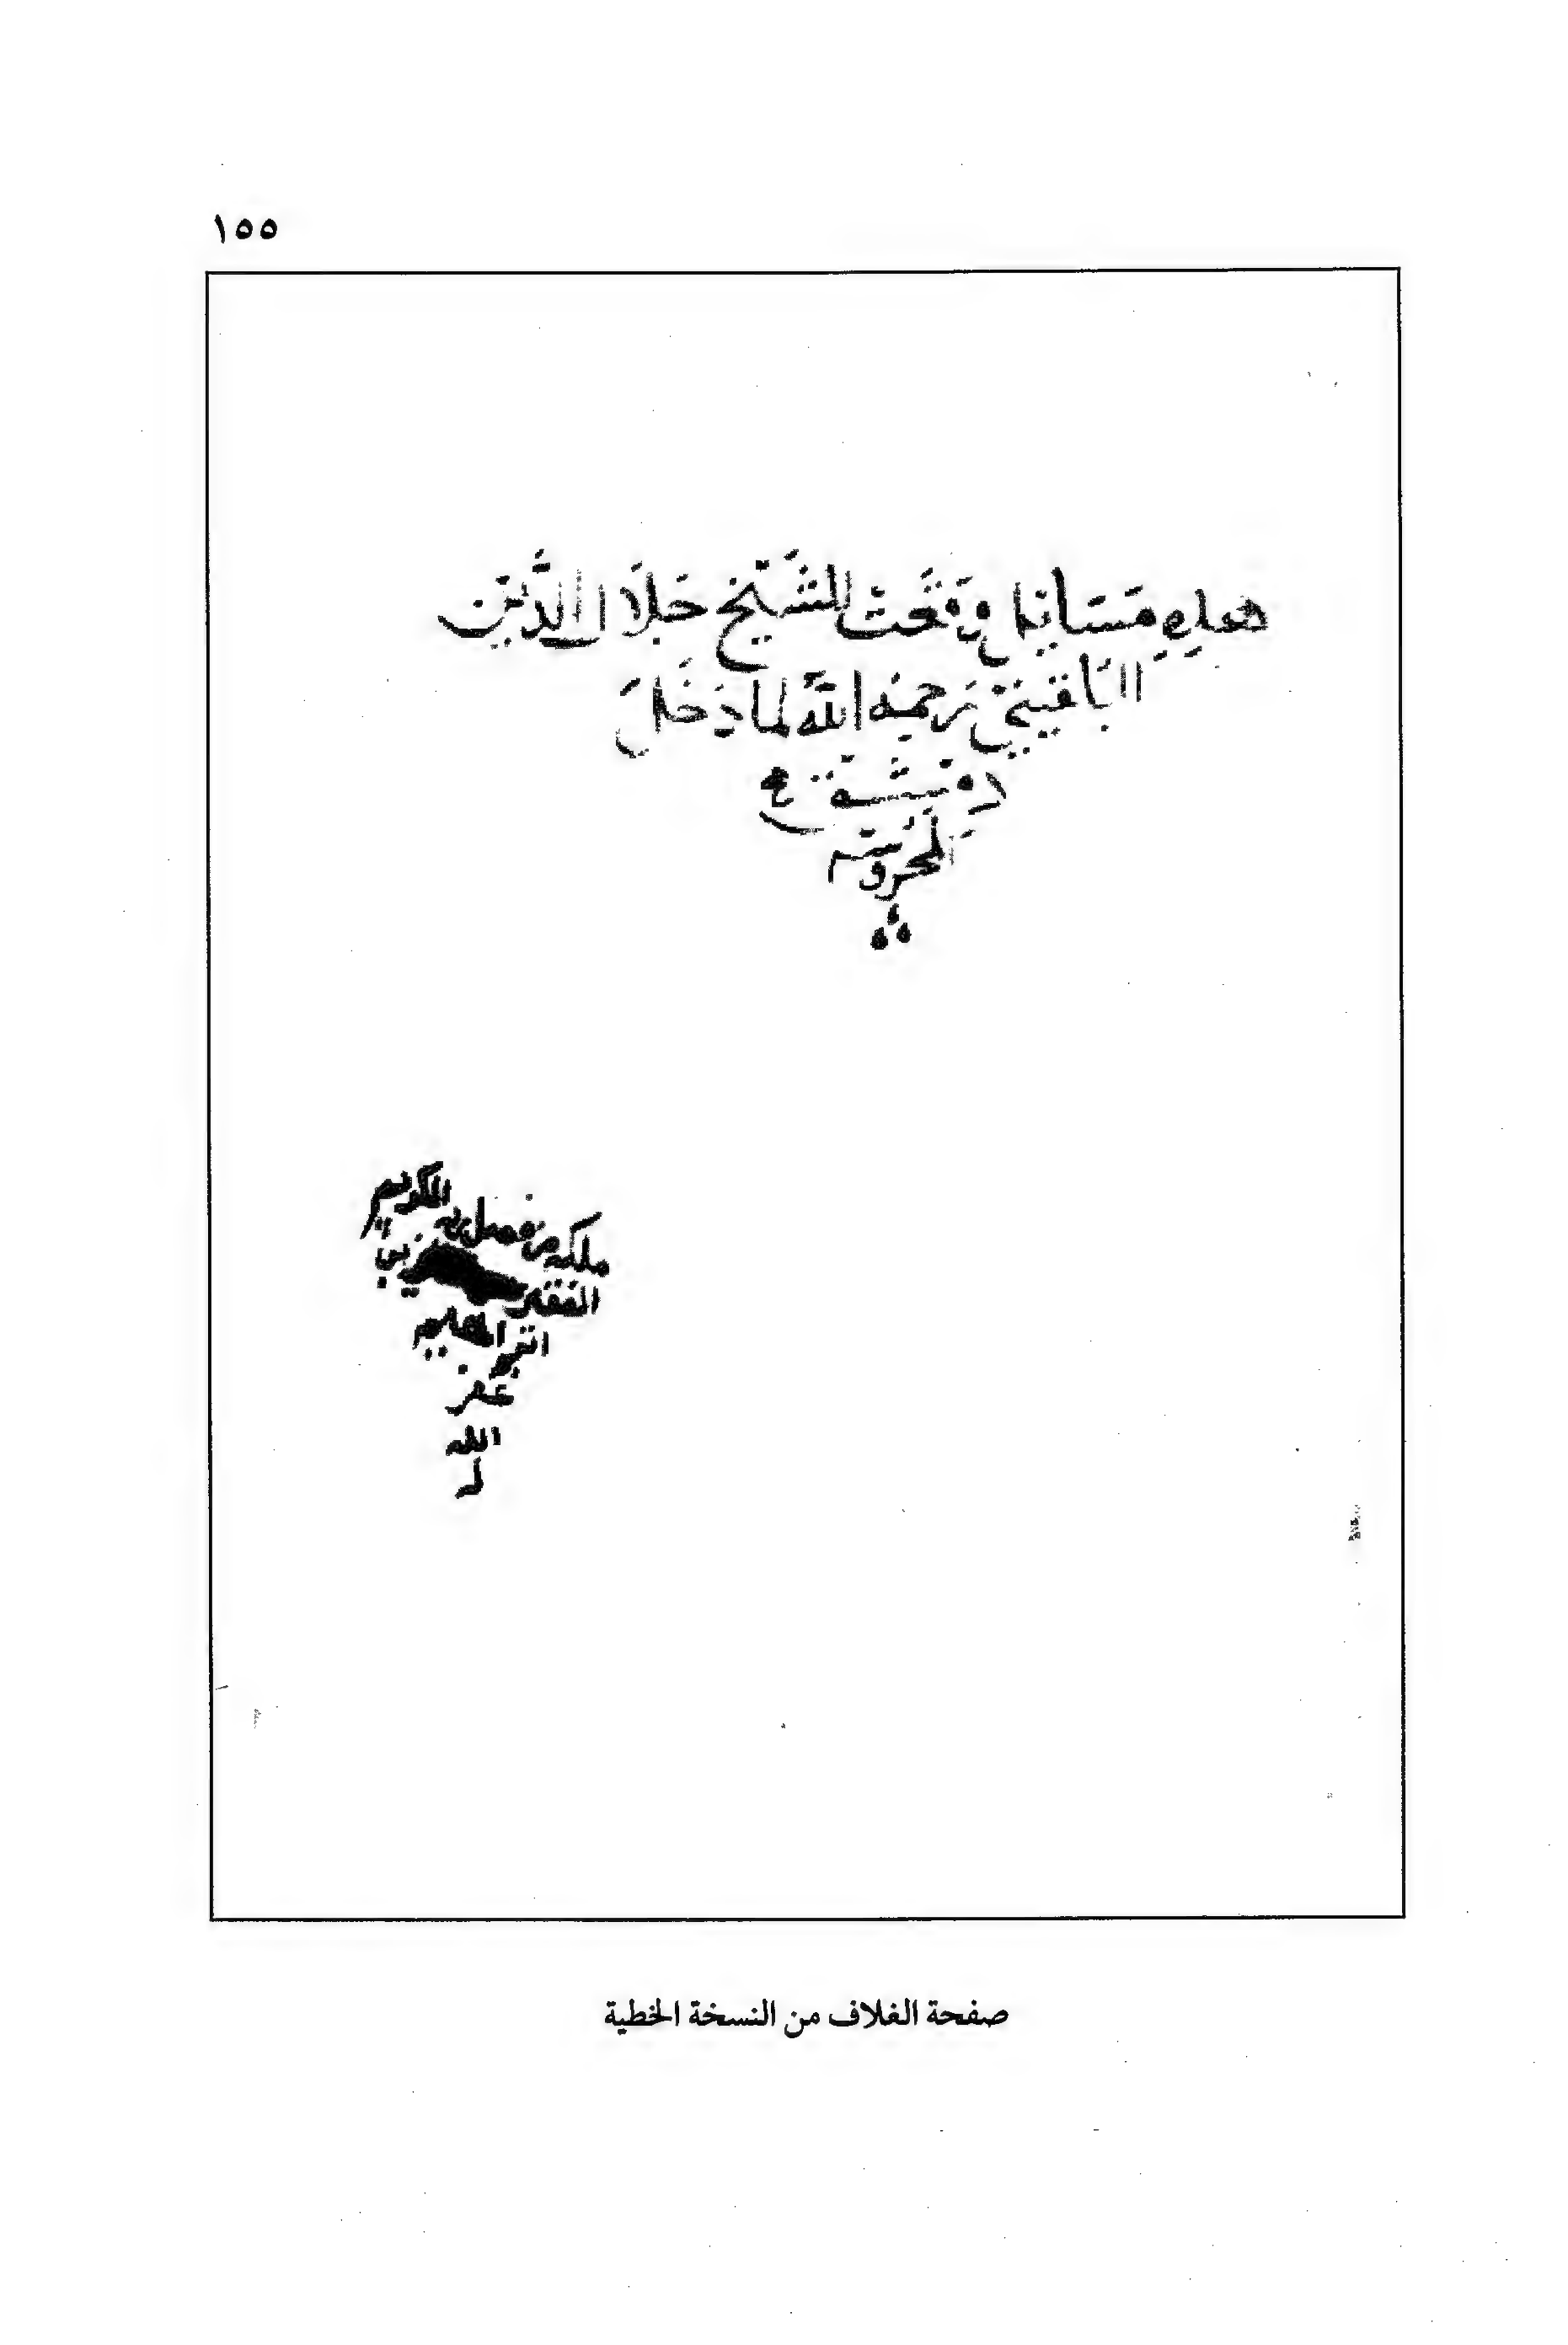 ١٥٥
هذه مسايل وقعت للشيخ جلال الدين
البلقيني رحمه الله لما دخل
دمشق
المحروسة
ملكه من فضل ربه الكريم
الفقير
عفر
الله
له
صفحة الغلاف من النسخة الخطية